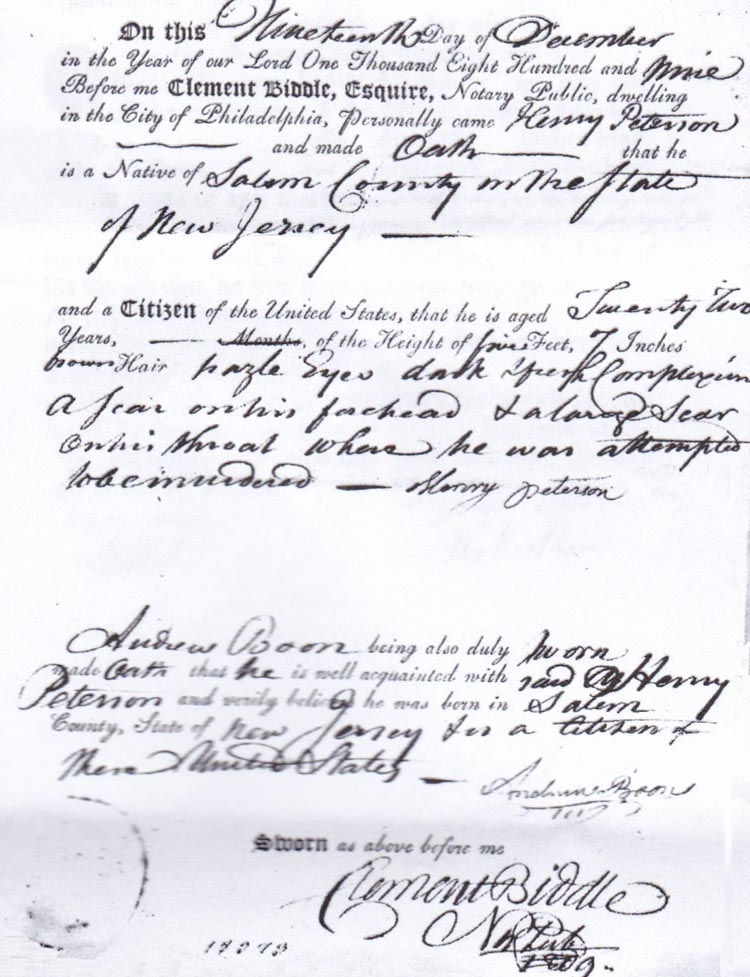 On this Nineteenth Day of December
in the Year of our Lord One Thousand Eight Hundred and nine
Before me Clement Biddle, Esquire, Notary Public, dwelling
in the City of Philadelphia, personally came Henry Peterson
and made Oath that he
is a Native of Salem County in the State
of New Jersey
and a Citizen of the United States, that he is aged Twenty Two
Years, Months, of the Height of five Feet, 7 Inches
brown Hair hazle Eyes dark fresh Complexion
a scar on his forehead & a large Scar
on his throat where he was attempted
to be murdered — Henry Peterson
Andrew Boon being also duly sworn
made Oath that he is well acquainted with said Henry
Peterson and verily believes he was born in Salem
County, State of New Jersey & is a Citizen of
these United States —
Andrew Boon
Sworn as above before me
Clement Biddle
Not Pub
1809